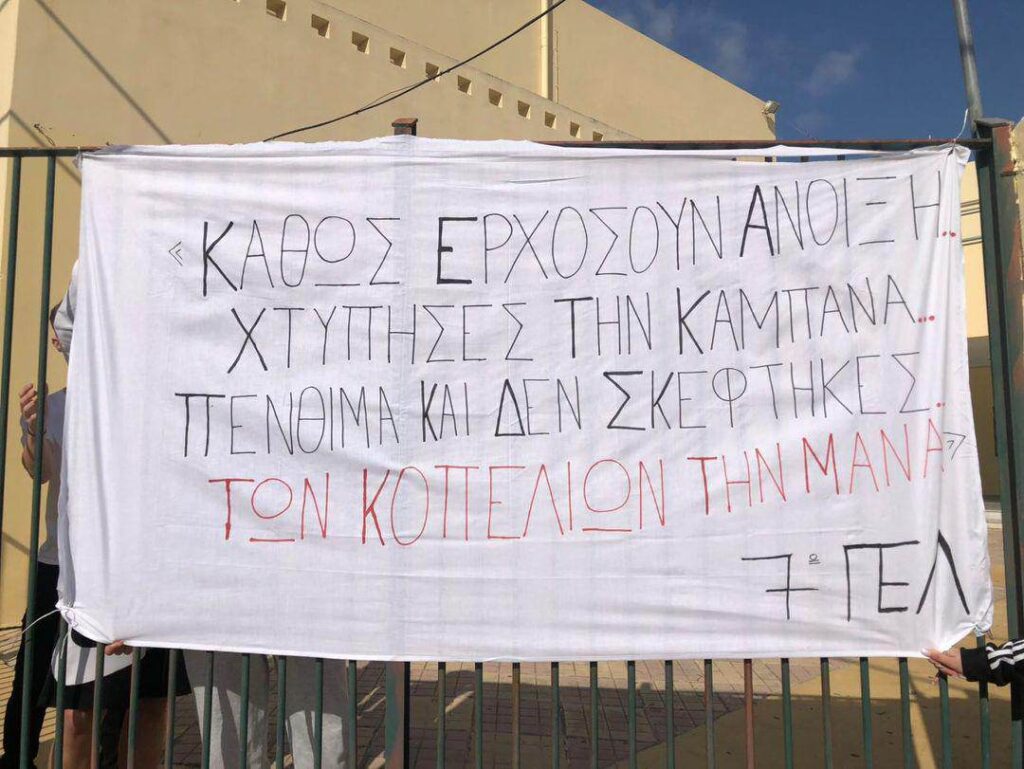 «ΚΑΘΩΣ ΕΡΧΟΣΟΥΝ ΑΝΟΙΞΗ..
ΧΤΥΠΗΣΕΣ ΤΗΝ ΚΑΜΠΑΝΑ...
ΠΕΝΘΙΜΑ ΚΑΙ ΔΕΝ ΣΚΕΦΤΗΚΕΣ..
ΤΩΝ ΚΟΠΕΛΙΩΝ ΤΗΝ ΜΑΝΑ»
7º ΓΕΛ